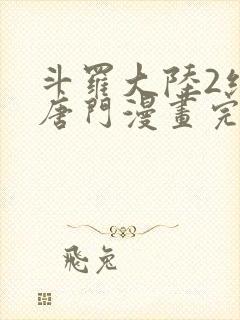 斗羅大陸2絕
唐門漫畫完
飛兔